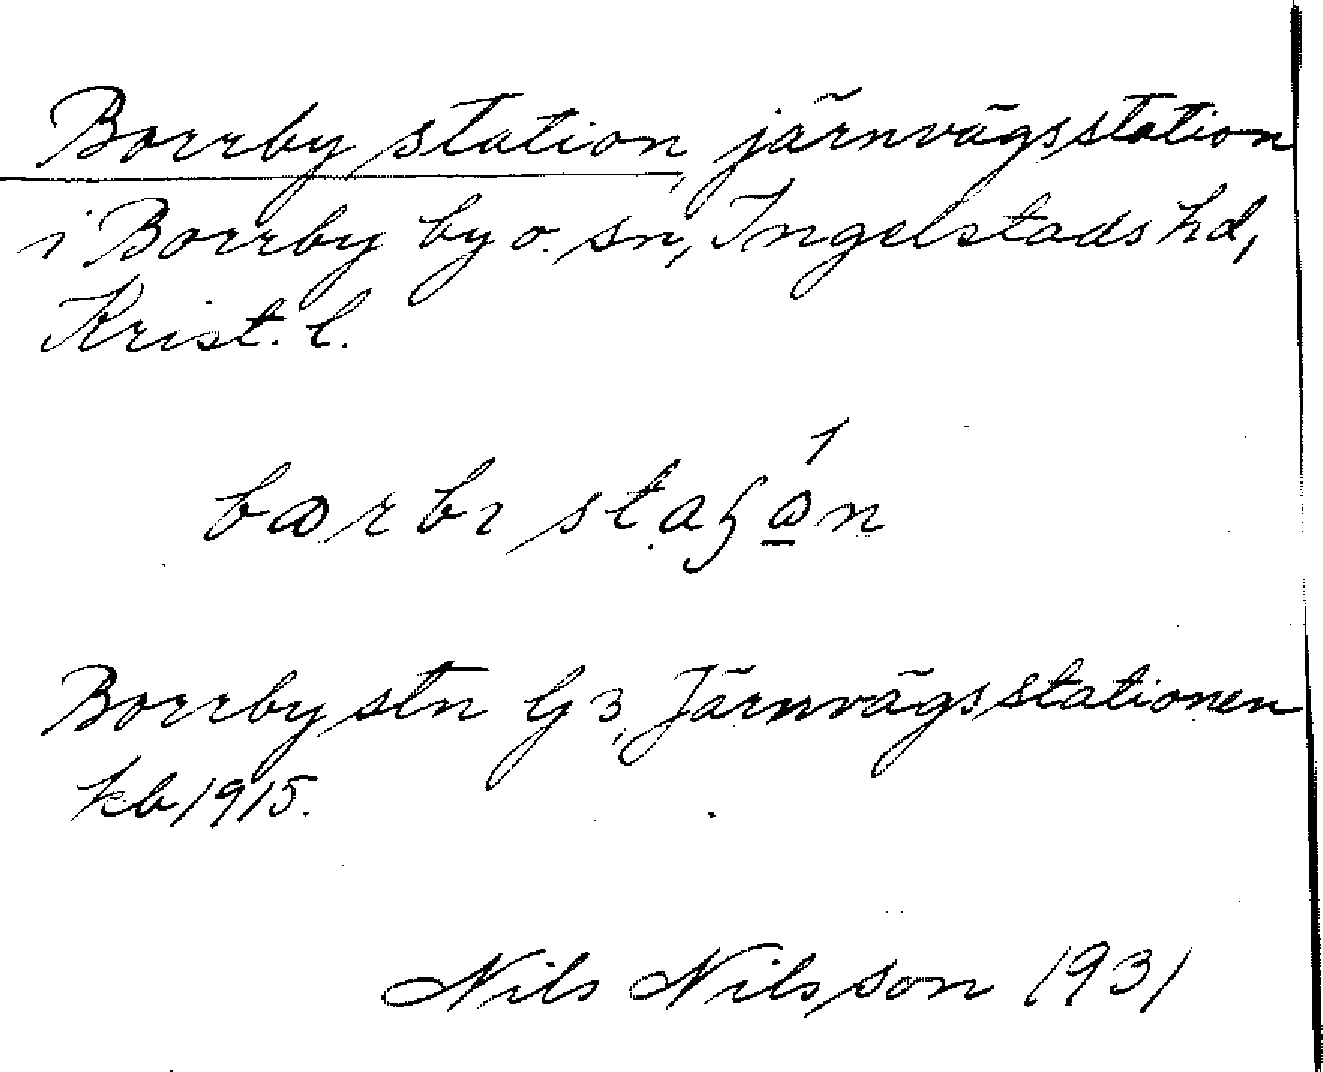 Borrby station, järnvägsstation
i Borrby by o. sn, Ingelstads hd,
Krist. l.
Borrby stn G 3, Järnvägsstationen
kb 1915.
Nils Nilsson 1931